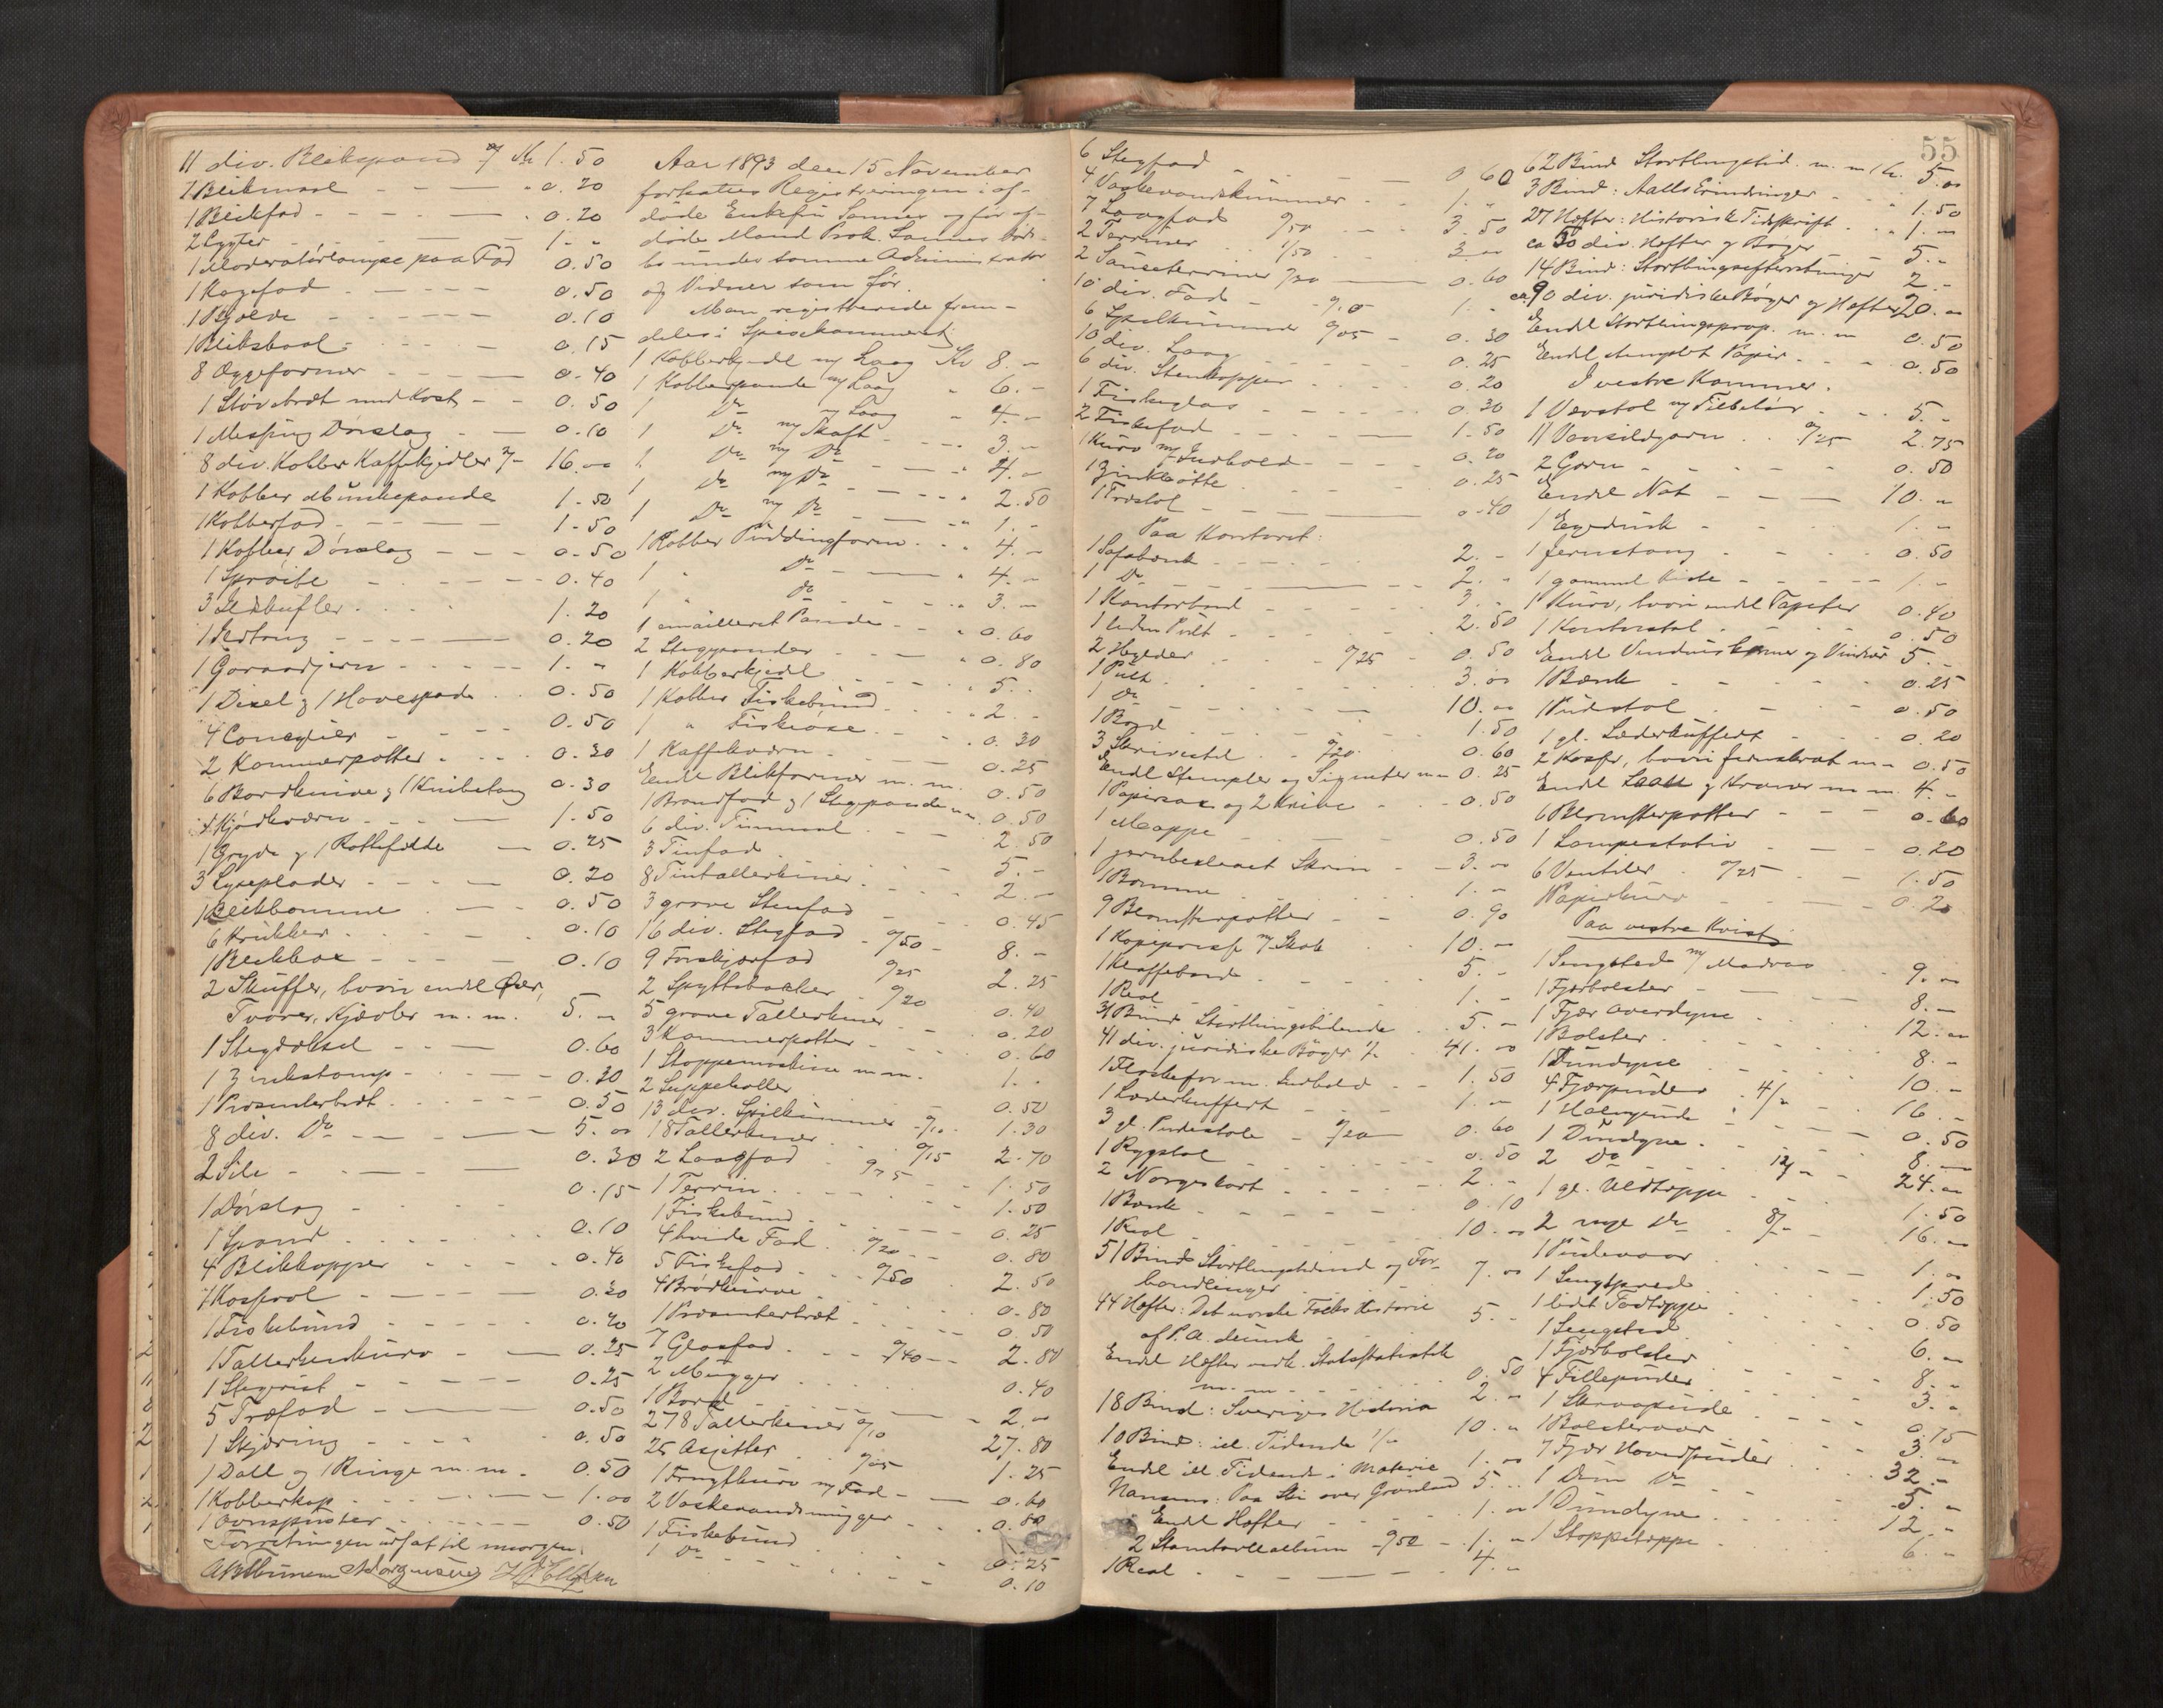 11 div. Blikspand Kr 1.50
2 Blikmaal - - - 0.20
1 Blikfad - - - 0.20
2 Lygter - - - 1. "
1 Moderatørlampe paa Fod 0.50
1 Kagefad - - - 0.50
1 Bjelde - - - 0.10
1 Blikskaal - - - 0.15
8 Æggeformer - - - 0.40
1 Støvebræt med Kost - - 0.50
1 Messing Dørslag - - 0.10
8 div. Kobber Kaffekjedler 2/- 16.00
1 Kobber Munkepande 1.50
1 Kobberfad - - - 1.50
1 Kobber Dørslag - - - 0.50
1 Sprøite - - - 0.40
3 Ildskufler - - - 1.20
1 Ildtang - - - 0.20
1 Goraadjern - - - 1. "
1 Dixel og 1 Hovespade . . 0.50
4 - - - 0.50
2 Kammerpotter - - - 0.30
6 Bordknive og 1 Knibetang 0.30
1 Kjødkværn - - - 1.50
1 Gryde og 1 Rottefælde - 0.25
3 Lyseplader - - - 0.20
1 Blikbomme - - - 0.50
6 Krukker - - - 0.10
1 Blikbox - - - 0.10
2 Skuffer, hvori endel Øser,
Tvarer, Kjævler m. m. 5. "
1 - - 0.60
1 Zinkstamp - - - 0.30
1 Præsenterbræt - - - 0.50
8 div. Do - - - 5.00
2 Sile - - - 0.30
1 Dørslag - - - 0.15
1 Spand - - - 0.10
4 Blikkopper - - - 0.40
1 - - - 0.20
1 Fiskebund - - - 0.20
1 Tallerkenkurv - - 0.25
1 Stegerist - - - 0.25
5 Træfad - - - 0.50
1 Skjæring - - - 0.50
1 Dall og 1 Ringe m. m. 0.50
1 Kobberkop - - - 1.00
1 Ovnspuster - - - 0.50
Forretningen udsat til imorgen.
Aar 1893 den 15 November
fortsattes Registreringen i af-
døde Enkefru Sannes og før af-
døde Mand Prok. Sannes Døds-
bo under samme Administrator
og Vidner som før.
Man registrerede frem-
deles i Spisekammeret:
1 Kobberkjedel m/ Laag Kr 8. -
1 Kobberpande m/ Laag " 6. -
1 Do m/ Laag " 4. -
1 Do m/ Skaft - - 3. -
1 Do m/ Do - - 4. -
1 Do m/ Do - - 2.50
1 Do m/ Do - - 1. -
1 Kobber Puddingform - - 4. -
1 " Do - - 4. -
1 " Do - - 3. -
1 emailleret Pande - - 0.60
2 Stegepander - - 0.80
1 Kobberkjedel - - 5. -
1 Kobber Fiskebund - - 2. -
1 " Fiskeøse - - 0.30
1 Kaffekværn - - 0.25
Endel Blikformer m. m. 0.50
1 Brandfad og 1 Stegepande m.m. 0.50
6 div. Tinmaal - - 2.50
3 Tinfad - - 5. -
8 Tintallerkener - - 2. -
3 grove Stenfad - - 0.45
16 div. Stegfad - 0/50 - 8. -
9 Forskjærfad 0/25 2.25
2 Spyttebakker - 0/20 0.40
5 grove Tallerkener - - 0.20
3 Kammerpotter - - 0.60
1 Stoppemaskine m.m. 1. -
2 Suppeboller - - 0.50
13 div. Spilkummer 0/10 1.30
18 Tallerkener - 0/15 2.70
2 Laagfad - 0/75 - 1.50
1 Terrin - - 1.50
1 Fiskebund - - 0.25
4 hvide Fad - 0/20 - - 0.80
5 Fiskefad - - 0/50 2.50
4 Brødkurve - - 0.80
1 Præsenterbræt - - 0.50
7 Glasfad - - 0/40 - - 2.80
2 Mugger - - 0.40
1 Bord - - 2. "
278 Tallerkener 0/10 27.80
25 Asjetter 0/05 1.25
1 Frugtkurv m/ Fad - - 0.60
2 Vaskevandsmugger - - 0.80
1 Fiskebund - - 0.25
1 Do - - 0.10
55
6 Stegfad - - 0.60
4 Vaskevandskummer - - 1. "
7 Laagfad 0/50 - - 3.50
2 Terriner 1/50 - - 3 "
2 Sauseterriner 0/30 - - 0.60
10 div. Fad - - 0/10 1. -
6 Spilkummer 0/05 - 0.30
10 div. Laag - - 0.25
6 div. Stenkopper - - 0.20
1 Fiskeglas - - 0.30
2 Fiskefad - - 1.50
1 Kurv m/ Indhold - - 0.20
1 Zinkbøtte - - 0.25
1 Træstol - - 0.40
Paa Kontoret:
1 Sofabænk - - 2. -
1 Do - - 2. -
1 Kontorbord - - 3. -
1 liden Pult - - 2.50
2 Hylder - - 0/25 - 0.50
1 Pult - - 3.00
1 Do - - 10.00
1 Bord - - 1.50
3 Skrivestel - - 0/20 - 0.60
Endel Stempler og Signeter m.m. 0.25
1 Papirsax og 2 Knive - - 0.50
1 Mappe - - 0.50
1 jernbeslaaet Skrin - - 3.00
1 Bomme - - 1. -
9 Blomsterpotter - - 0.90
1 Kopipresse m/ Skab 10. -
1 Klaffebord - - 5. -
1 Reol - - 1. -
31 Bind Storthingstidende - - 5. -
41 div. juridiske Bøger 1/- 41.00
1 Flaskefor m. Indhold - - 1.50
1 Læderkuffert - - 1. -
3 gl. Pindestole - 0/20 - 0.60
1 Rygstol - - 0.50
2 Norgeskart - - 2. -
1 Bænk - - 0.10
1 Reol - - 10.00
51 Bind Storthingstidend og For-
handlinger - - 7.00
44 Hefter: Det norske Folks Historie
af P. A. Munk - - 5. -
Endel Hefter vedk. Statsstatistik
m. m. - - 0.50
18 Bind: Sveriges Historie 2. "
10 Bind: ill. Tidende 1/- 10. "
Endel ill. Tidende i Materie 1.00
Nansens: Paa Ski over Grønland 5. "
Endel Hefter - - 1. "
2 Stamtavlealbum 0/50 - 1. "
1 Reol - - 4. "
62 Bind Storthingstid. m. m. Kr. 5.00
3 Bind: Aalls Erindringer - - 1.50
27 Hefter: Historisk Tidsskrift - - 1. "
ca 30 div. Hefter og Bøger - - 5. "
14 Bind: Storthingsefterretninger 2. -
ca. 90 div. juridiske Bøger og Hefter 20. "
Endel Storthingsprop. m. m 0.50
Endel stemplet Papir - - 0.50
I vestre Kammer.
1 Vævstol m/ Tilbehør - - 5. -
11 Vaarsildgarn - - 0/25 2.75
2 Garn - - 0.50
Endel Not - - 10. "
1 Egedunk - - 1. "
1 Jernstang - - 0.50
1 gammel Kiste - - 1. "
1 Kurv, hvori endel Tapeter 0.40
1 Kontorstol - - 0.50
Endel Vinduskarmer og Vinduer 5. -
1 Bænk - - 0.25
1 Pindestol - - 0.50
1 gl. Læderkuffert - - 0.20
2 Kasser, hvori Jernskrab m.m 0.50
Endel Laase og Kraner m. m. 4. -
6 Blomsterpotter - - 0.60
1 Lampestativ - - 0.20
6 Ventiler 0/25 - - 1.50
1 Papirkurv - - 0.20
Paa vestre Kvist:
1 Sengested m/ Madras 9. "
1 Fjærbolster - - 8. -
1 Fjær Overdyne - - 12. "
1 Bolster - - 8. -
1 Dundyne - - 10. -
4 Fjærpuder - 4/- 16. -
1 Halmpude - - 0.50
1 Dundyne - - 8. -
2 Do - - 12/- 24. "
1 gl. Uldteppe - - 1.50
2 nye Do - 8/- 16. "
1 Pudevaar - - 1.00
1 Sengspred - - 1.50
1 lidet Fodteppe - - 0.50
1 Sengsted - - 6. "
1 Fjærbolster - - 8. -
4 Fillepuder - - 3. -
1 Skraapude - - 0.75
1 Bolstervaar - - 3. -
7 Fjær Hovedpuder - - 32. -
1 Dun Do - - 5. -
1 Dundyne - - 12. -
1 Stoppeteppe - - 6. -